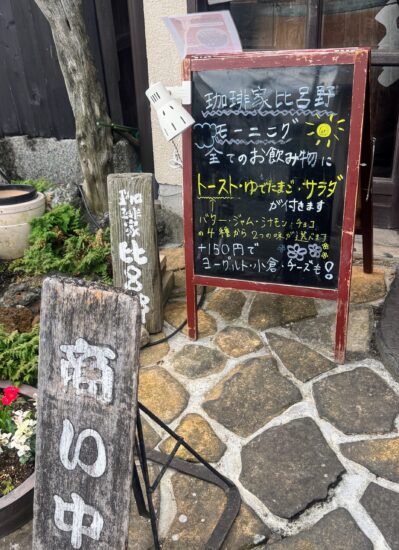 珈琲家比呂野
モーニング
全てのお飲み物に
トースト・ゆでたまご・サラダ
が付きます
バター・ジャム・シナモン・チョコ
の4種から2つの味が選べます
+150円で
ヨーグルト・小倉・チーズも!
珈琲家
比呂野
商い中